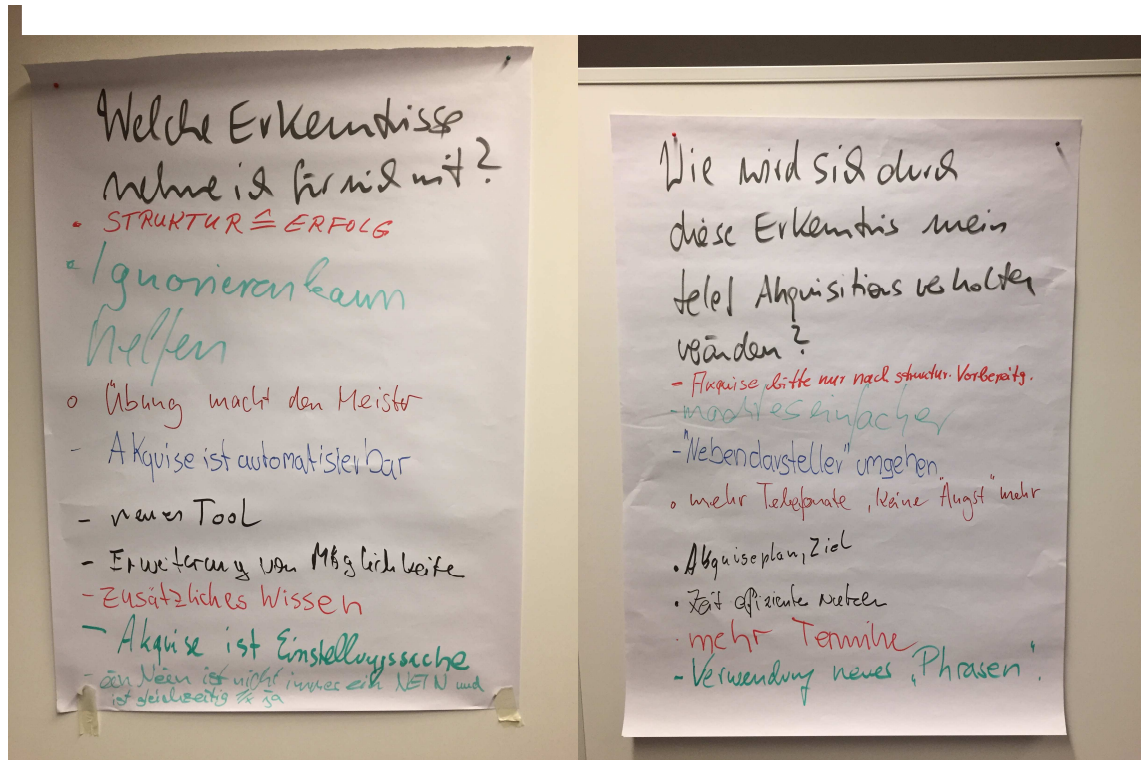 Welche Erkenntnisse
nehme ich für mich mit?
• STRUKTUR ≙ ERFOLG
• Ignorieren kann
helfen
o Übung macht den Meister
- Akquise ist automatisierbar
- neues Tool
- Erweiterung von Möglichkeite
- Zusätzliches Wissen
- Akquise ist Einstellungssache
- ein Nein ist nicht immer ein NEIN und
ist gleichzeitig ja
Wie wird sich durch
diese Erkenntnis mein
telef Akquisitionsverhalten
verändern?
- Akquise bitte nur nach struktur. Vorbereitg.
- macht es einfacher
- "Nebendarsteller" umgehen
o mehr Telefonate, keine "Angst" mehr
• Akquiseplan, Ziel
• Zeit effizienter nutzen
- mehr Termine
- Verwendung neues „Phrasen".